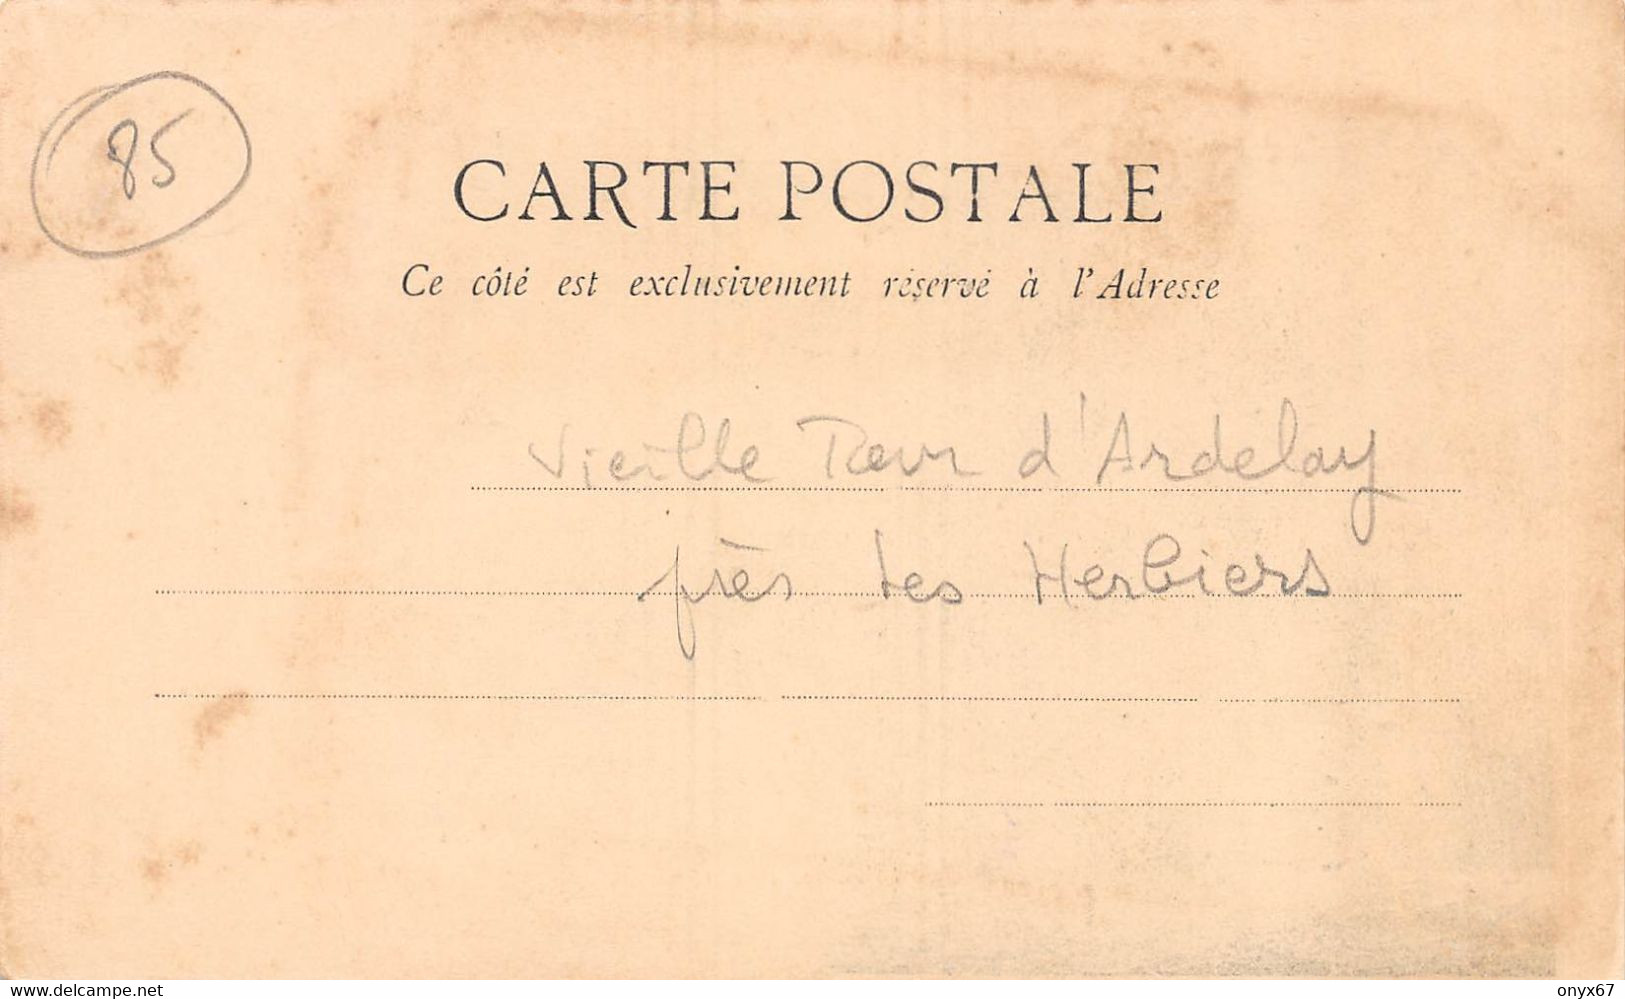 85
CARTE POSTALE
Ce côté est exclusivement réservé à l'Adresse
Vieille Tour d'Ardelay
près Les Herbiers
www.delcampe.net
onyx67